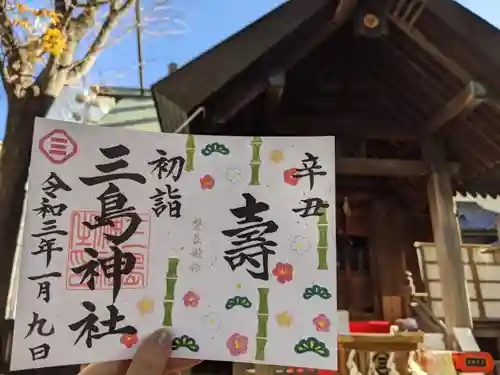 辛丑
壽
初詣
三島神社
令和三年一月九日